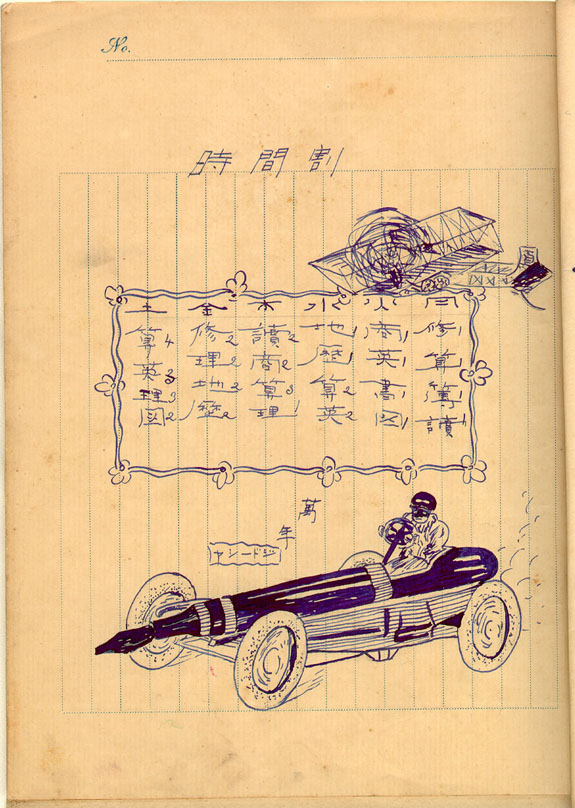 No.
時間割
月 修1 算1 簿1 讀1
火 商1 英1 書1 図1
水 地1 歴1 算2 英2
木 讀2 商2 算3 理1
金 修2 理2 地2 歴2
土 算4 英3 理3 図2
萬年